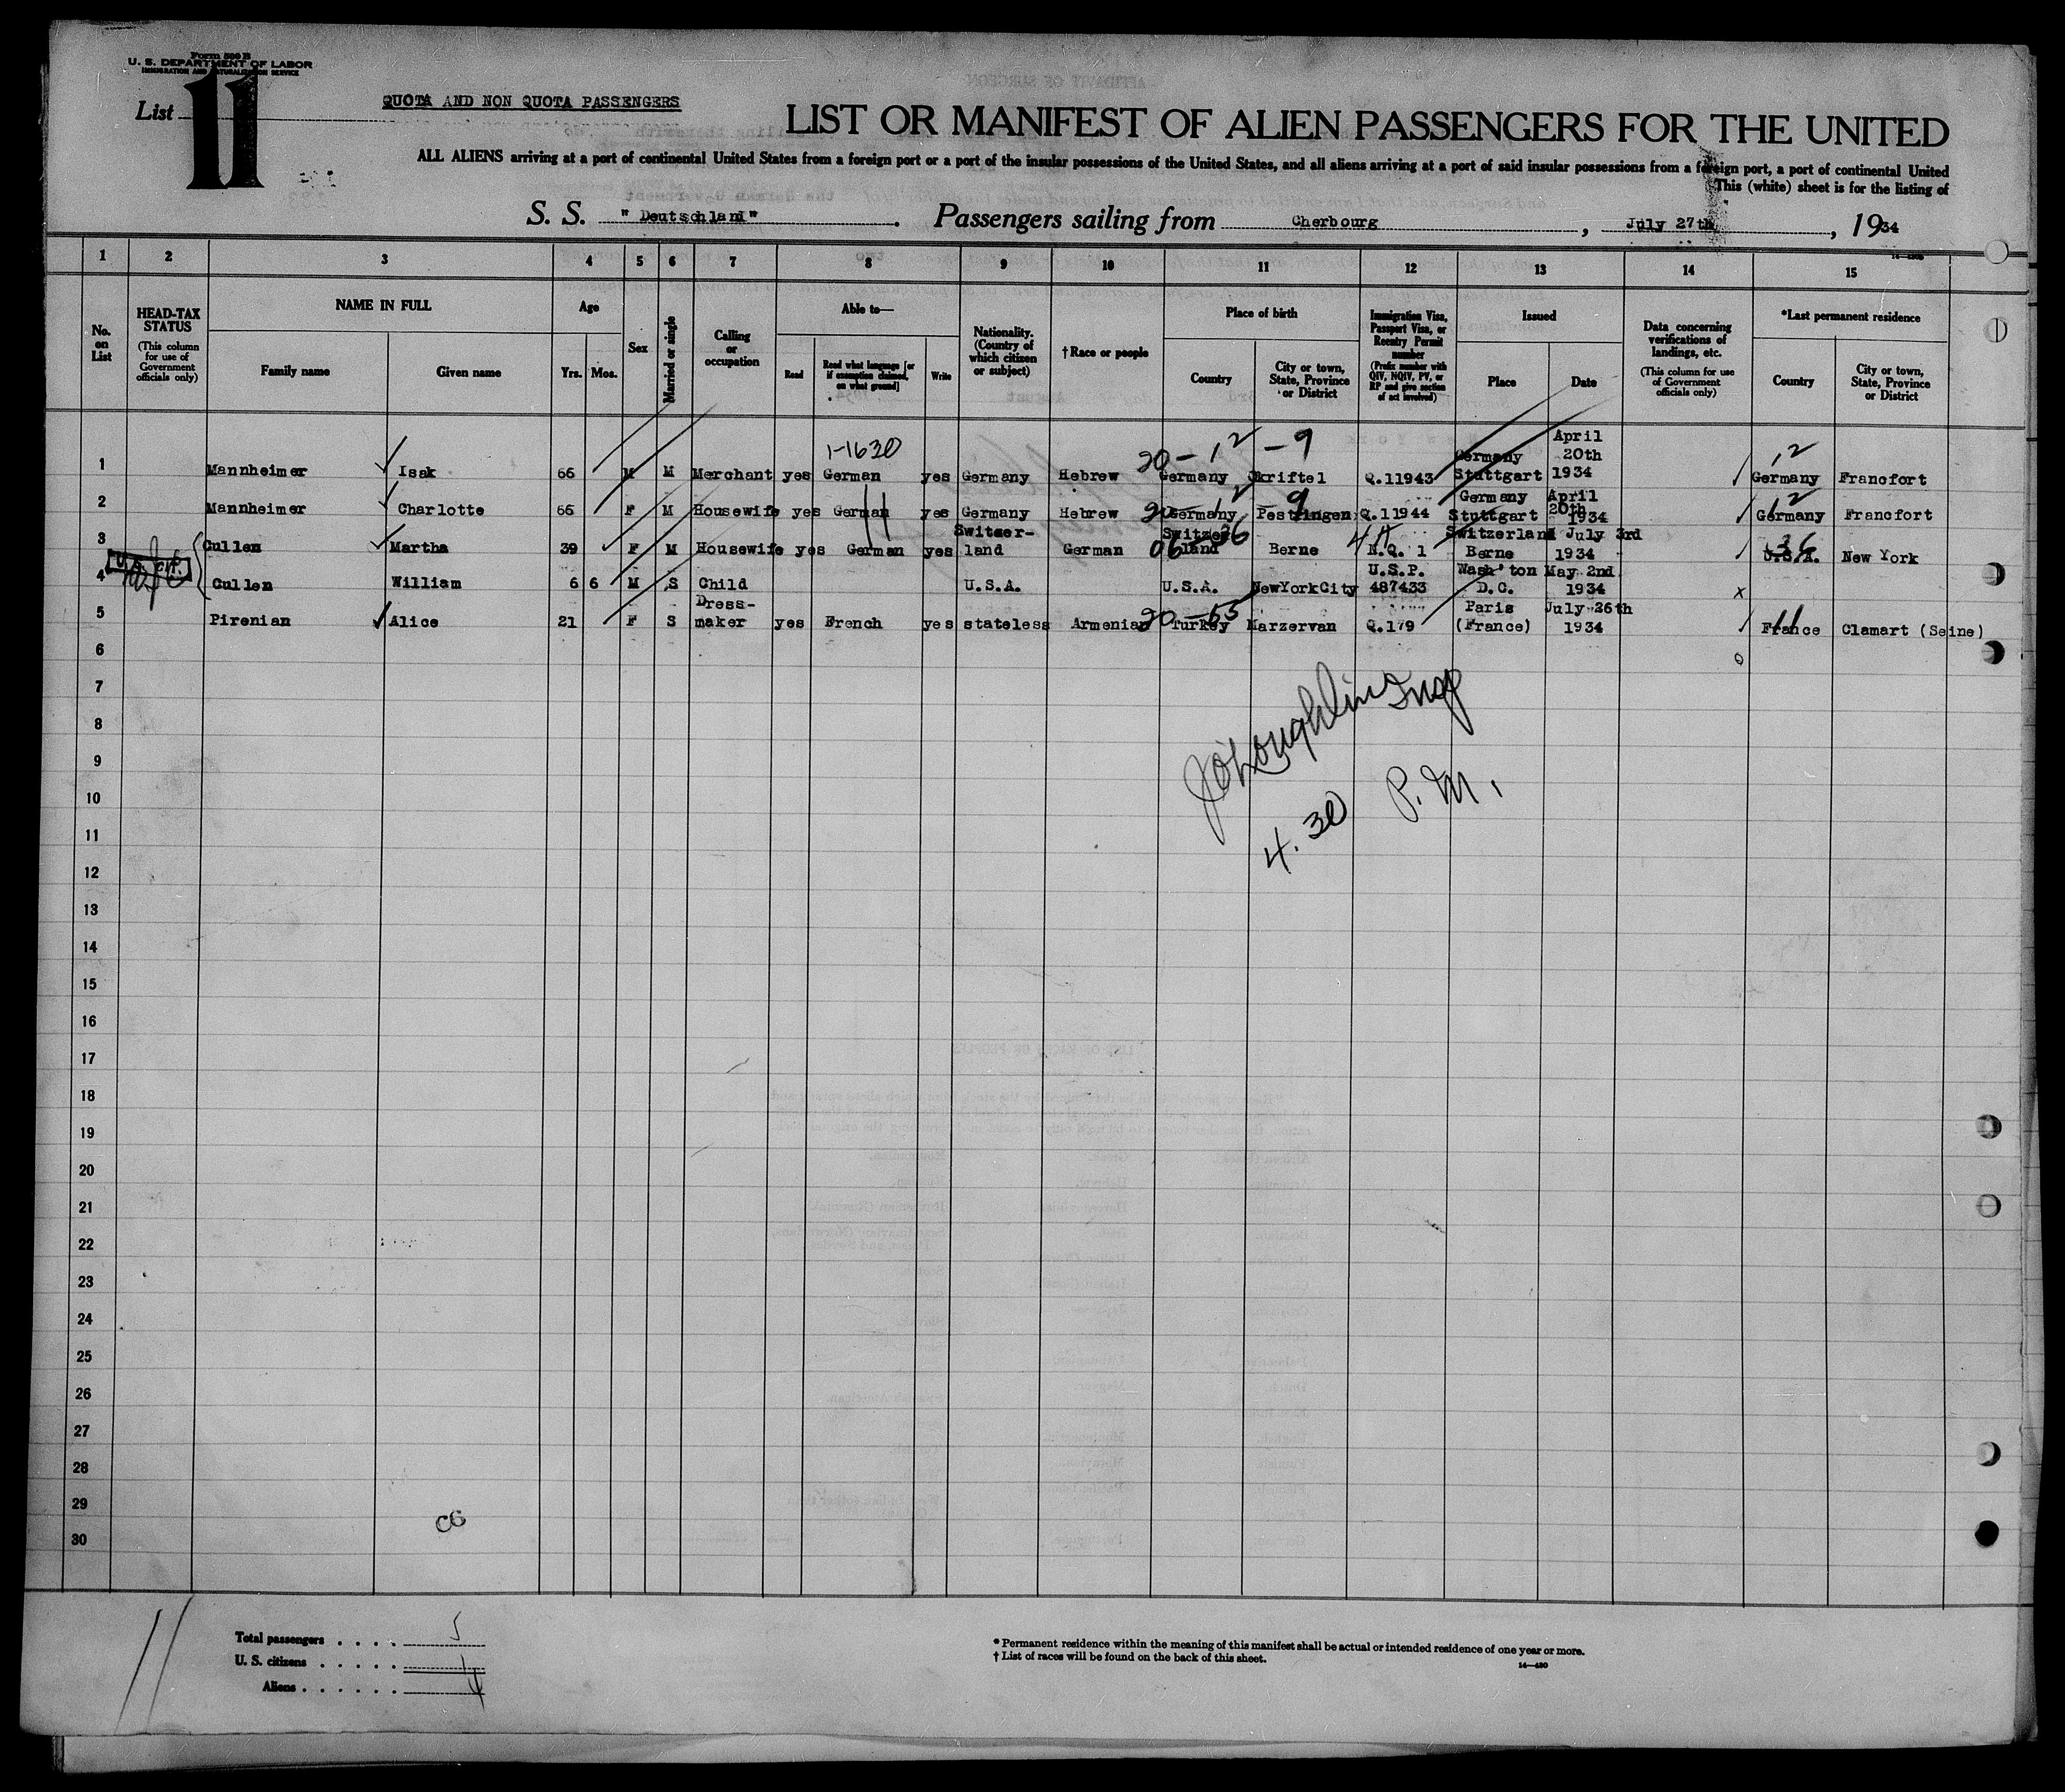 Form 500 B
U. S. DEPARTMENT OF LABOR
IMMIGRATION AND NATURALIZATION SERVICE
List 11
QUOTA AND NON QUOTA PASSENGERS
LIST OR MANIFEST OF ALIEN PASSENGERS FOR THE UNITED
ALL ALIENS arriving at a port of continental United States from a foreign port or a port of the insular possessions of the United States, and all aliens arriving at a port of said insular possessions from a foreign port, a port of continental United
This (white) sheet is for the listing of
S. S. "Deutschland". Passengers sailing from Cherbourg, July 27th, 1934
1 2 3 4 5 6 7 8 9 10 11 12 13 14 15
No. on List
HEAD-TAX STATUS (This column for use of Government officials only)
NAME IN FULL
Family name Given name
Age
Yrs. Mos.
Sex
Married or single
Calling or occupation
Able to—
Read Read what language [or if exemption claimed, on what ground] Write
Nationality. (Country of which citizen or subject)
† Race or people
Place of birth
Country City or town, State, Province or District
Immigration Visa, Passport Visa, or Reentry Permit number (Prefix number with QIV, NQIV, PV, or RP and give section of act involved)
Issued
Place Date
Data concerning verifications of landings, etc. (This column for use of Government officials only)
*Last permanent residence
Country City or town, State, Province or District
1-1630 20-12-9 12
1 Mannheimer Isak 66 M M Merchant yes German yes Germany Hebrew Germany Kriftel Q.11943 Germany Stuttgart April 20th 1934 Germany Francfort
2 Mannheimer Charlotte 66 F M Housewife yes German yes Germany Hebrew Germany Pestlingen Q.11944 Germany Stuttgart April 20th 1934 Germany Francfort
3 Cullen Martha 39 F M Housewife yes German yes Switzer-land German Switzerland Berne N.Q. 1 Switzerland Berne July 3rd 1934 U.S.A. New York
U.S. cit.
4 Cullen William 6 6 M S Child U.S.A. U.S.A. NewYorkCity U.S.P. 487433 Wash'ton D.C. May 2nd 1934 x
5 Pirenian Alice 21 F S Dress-maker yes French yes stateless Armenian Turkey Marzervan Q.179 Paris (France) July 26th 1934 France Clamart (Seine)
6
7
8
9
10
11
12
13
14
15
16
17
18
19
20
21
22
23
24
25
26
27
28
29
30
4.30 P.M.
CG
11
Total passengers . . . . 5
U. S. citizens . . . . . 1
Aliens . . . . . . 4
* Permanent residence within the meaning of this manifest shall be actual or intended residence of one year or more.
† List of races will be found on the back of this sheet.
14—480